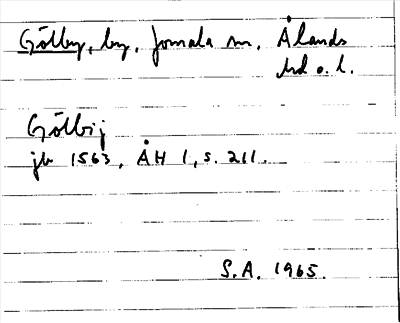 Gölby, by, Jomala sn, Ålands
hd o. l.
Gölbij
jb 1563, ÅH 1, s. 211.
S.A. 1965.